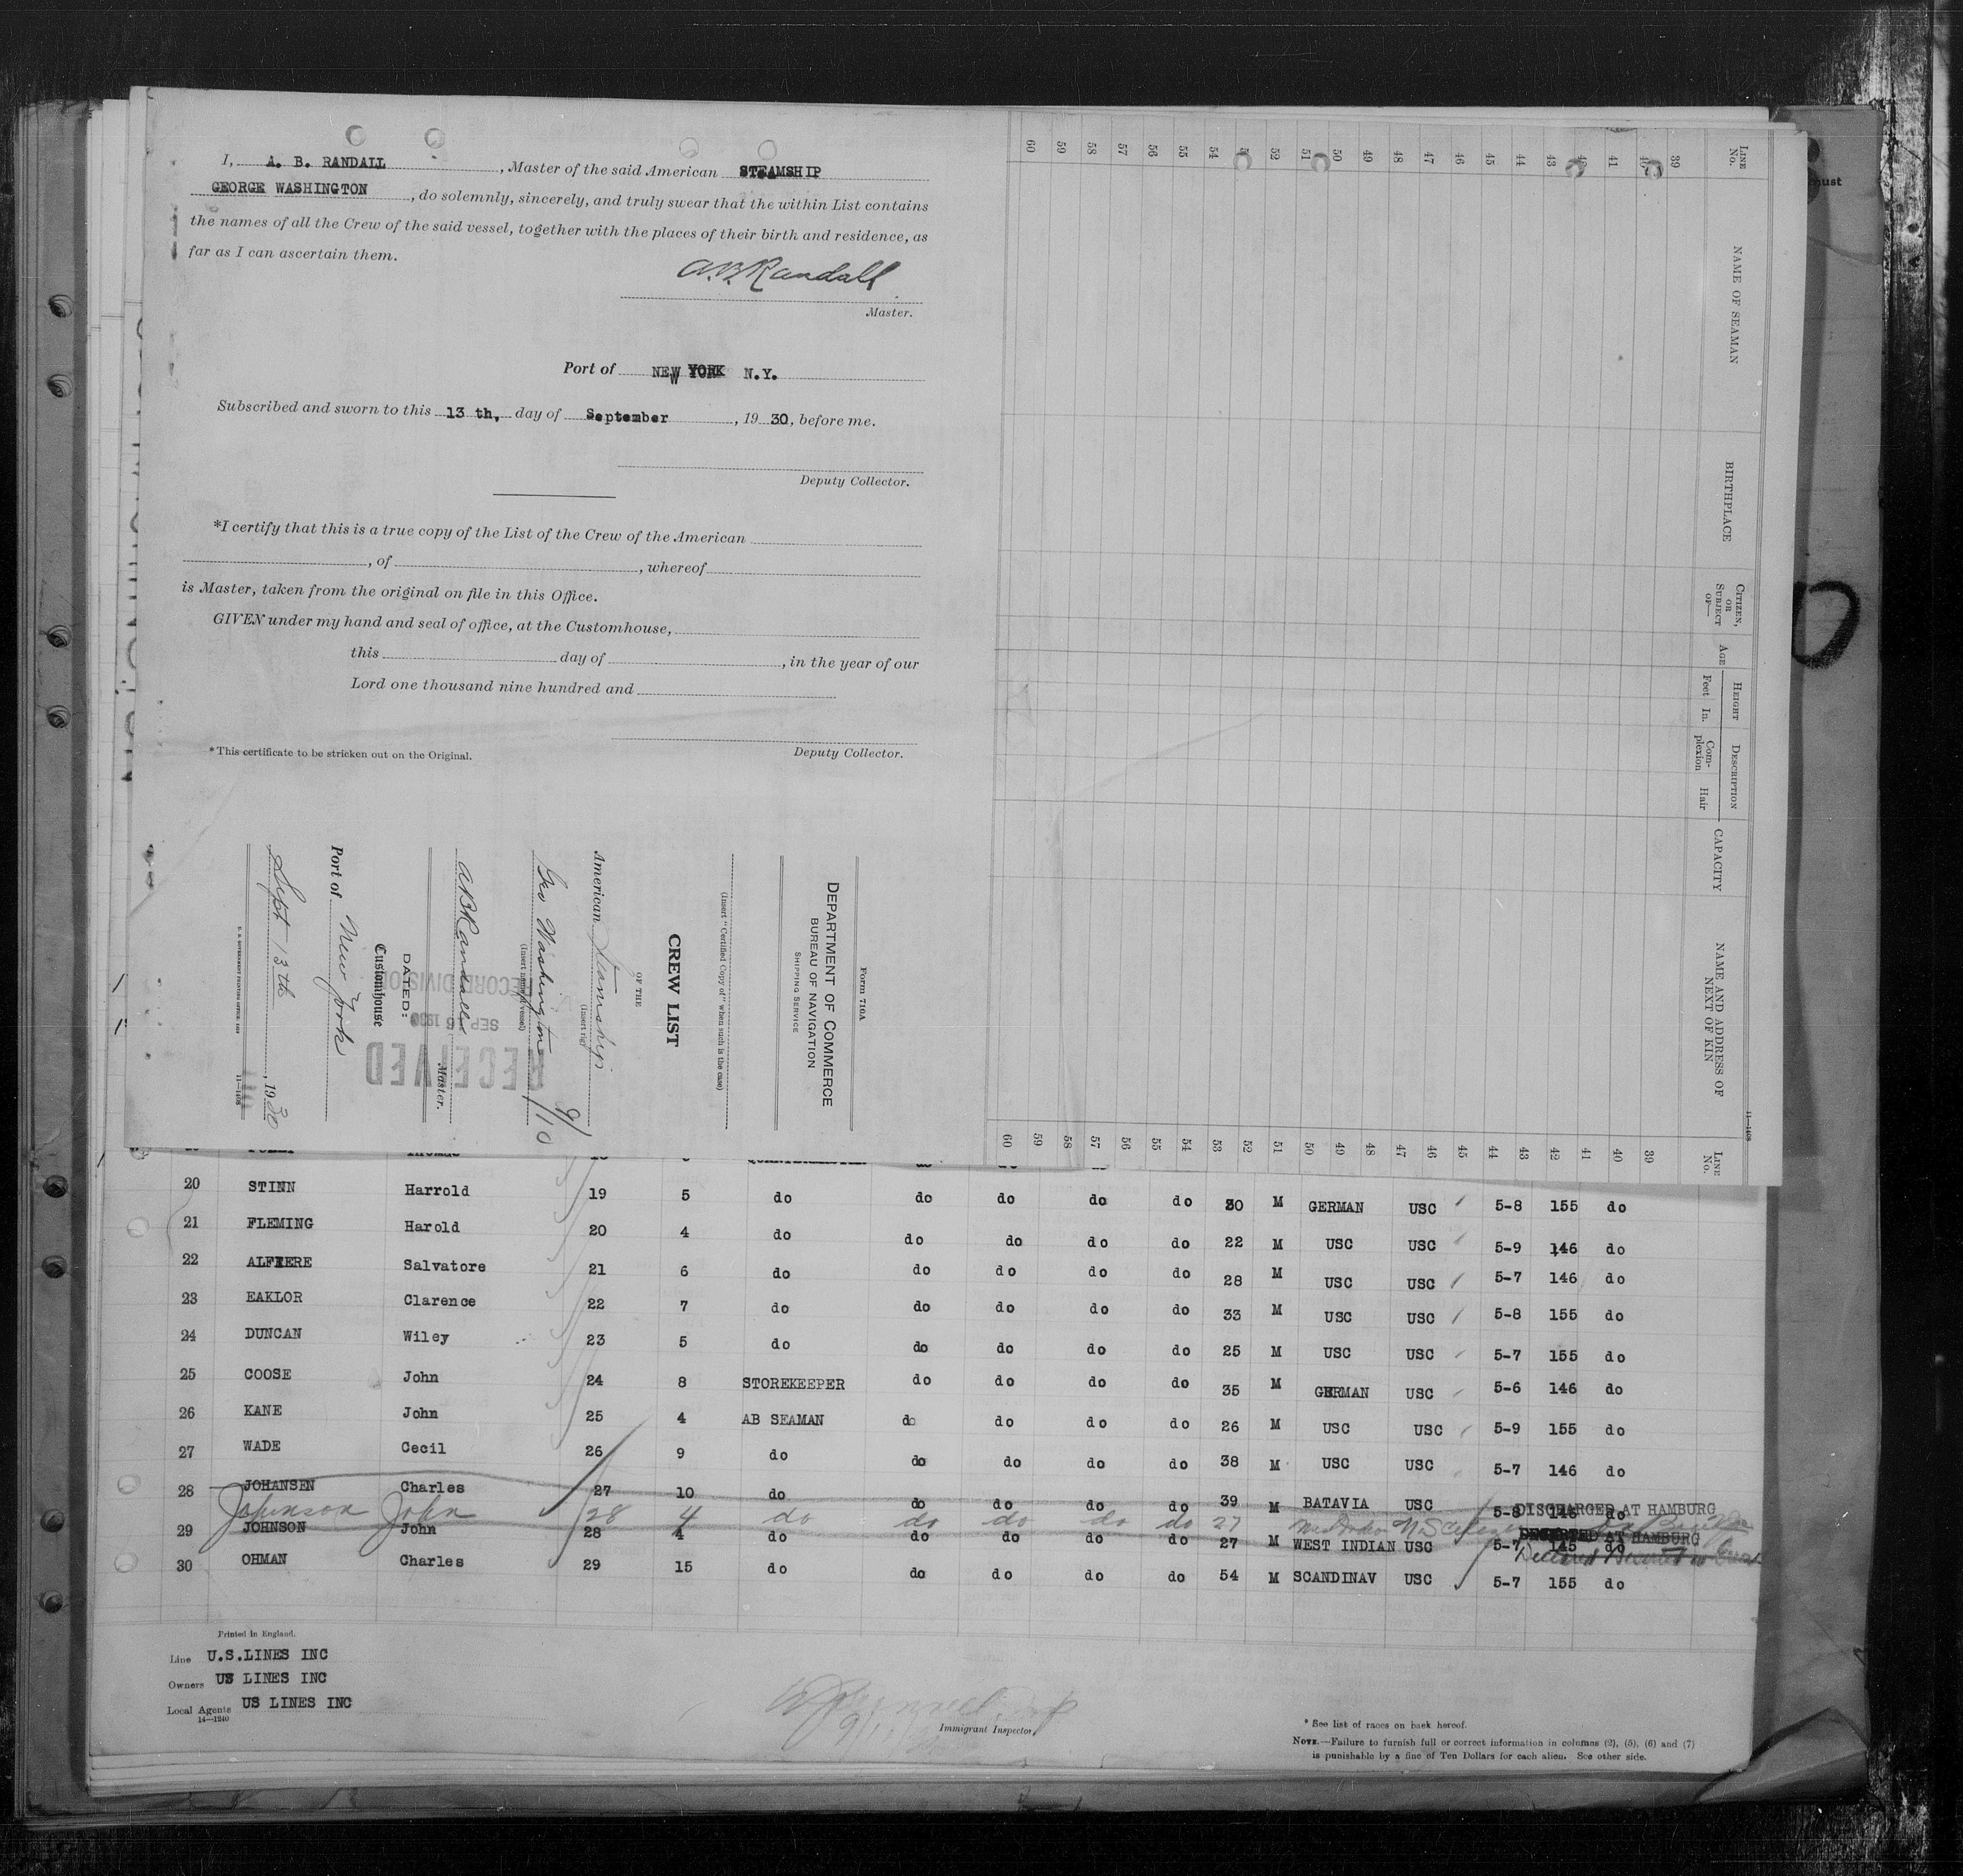 I, A. B. RANDALL, Master of the said American STEAMSHIP
GEORGE WASHINGTON, do solemnly, sincerely, and truly swear that the within List contains
the names of all the Crew of the said vessel, together with the places of their birth and residence, as
far as I can ascertain them.
A.B. Randall
Master.
Port of NEW YORK N.Y.
Subscribed and sworn to this 13 th, day of September, 19 30, before me.
Deputy Collector.
*I certify that this is a true copy of the List of the Crew of the American
, of , whereof
is Master, taken from the original on file in this Office.
GIVEN under my hand and seal of office, at the Customhouse,
this day of , in the year of our
Lord one thousand nine hundred and
Deputy Collector.
*This certificate to be stricken out on the Original.
Form 710A
DEPARTMENT OF COMMERCE
BUREAU OF NAVIGATION
SHIPPING SERVICE
(Insert "Certified Copy of" when such is the case)
CREW LIST
OF THE
American Steamship
(Insert rig)
Geo Washington
(Insert name of vessel)
9/10
A B Randall
Master.
RECEIVED
SEP 16 1930
RECORD DIVISION
DATED:
Customhouse
Port of New York
Sept 13th, 1930
U. S. GOVERNMENT PRINTING OFFICE: 11—1408
LINE No.
NAME OF SEAMAN
BIRTHPLACE
CITIZEN, OR SUBJECT OF—
AGE
HEIGHT
Feet In.
DESCRIPTION
Complexion Hair
CAPACITY
NAME AND ADDRESS OF NEXT OF KIN
11—1408
60 59 58 57 56 55 54 52 51 50 49 48 47 46 45 44 43 41 39
LINE No.
60 59 58 57 56 55 54 53 52 51 50 49 48 47 46 45 44 43 42 41 40 39
must
20 STINN Harrold 19 5 do do do do do 30 M GERMAN USC 5-8 155 do
21 FLEMING Harold 20 4 do do do do do 22 M USC USC 5-9 146 do
22 ALFIERE Salvatore 21 6 do do do do do 28 M USC USC 5-7 146 do
23 EAKLOR Clarence 22 7 do do do do do 33 M USC USC 5-8 155 do
24 DUNCAN Wiley 23 5 do do do do do 25 M USC USC 5-7 155 do
25 COOSE John 24 8 STOREKEEPER do do do do 35 M GERMAN USC 5-6 146 do
26 KANE John 25 4 AB SEAMAN do do do do 26 M USC USC 5-9 155 do
27 WADE Cecil 26 9 do do do do do 38 M USC USC 5-7 146 do
28 JOHANSEN Charles 27 10 do do do do do 39 M BATAVIA USC 5-8 146 do DISCHARGED AT HAMBURG
Johnson John 28 4 do do do do do 27
29 JOHNSON John 28 4 do do do do do 27 M WEST INDIAN USC 5-7 145 do AT HAMBURG
30 OHMAN Charles 29 15 do do do do do 54 M SCANDINAV USC 5-7 155 do
Printed in England.
Line U.S.LINES INC
Owners US LINES INC
Local Agents US LINES INC
14—1240
Immigrant Inspector.
* See list of races on back hereof.
NOTE.—Failure to furnish full or correct information in columns (2), (5), (6) and (7)
is punishable by a fine of Ten Dollars for each alien. See other side.